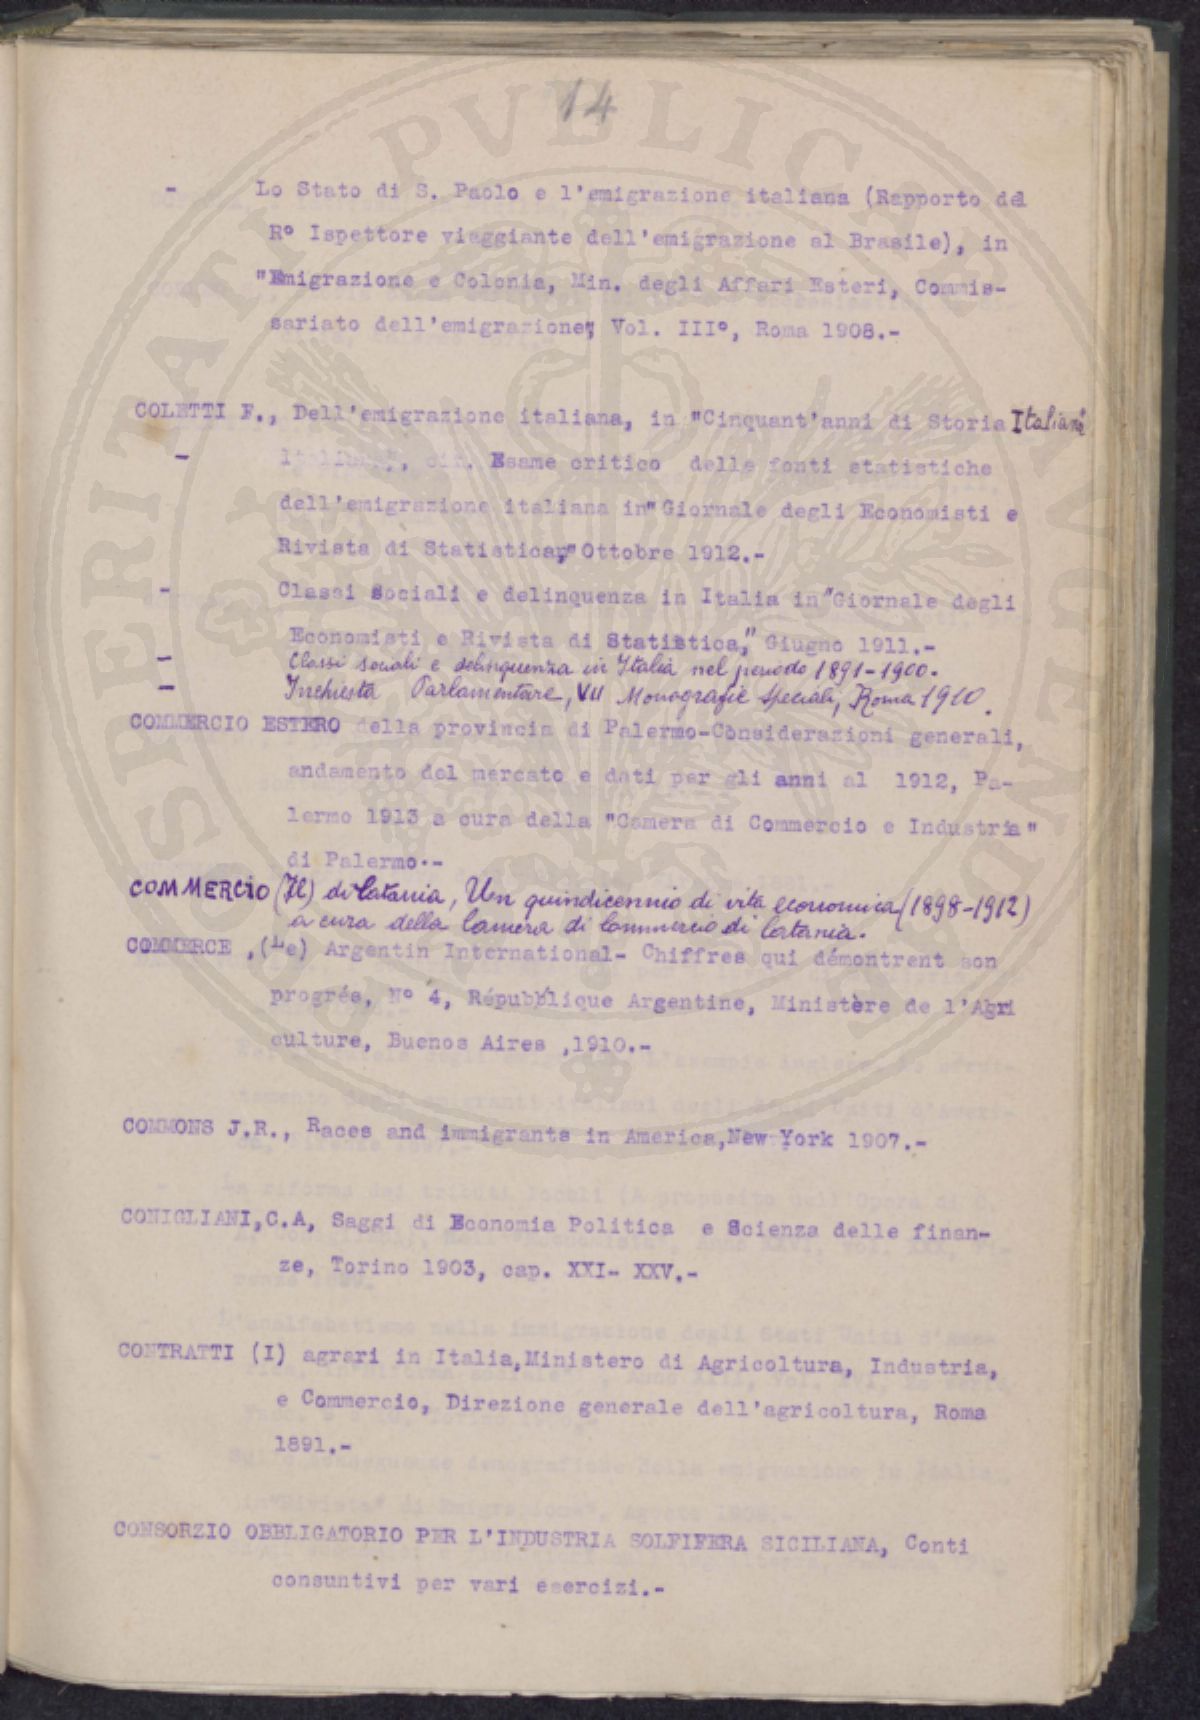 14
- Lo Stato di S. Paolo e l'emigrazione italiana (Rapporto del
R° Ispettore viaggiante dell'emigrazione al Brasile), in
"Emigrazione e Colonie, Min. degli Affari Esteri, Commis-
sariato dell'emigrazione", Vol. III°, Roma 1908.-
COLETTI F., Dell'emigrazione italiana, in "Cinquant'anni di Storia Italiana"
- Italiana", cit. Esame critico delle fonti statistiche
dell'emigrazione italiana in "Giornale degli Economisti e
Rivista di Statistica," Ottobre 1912.-
- Classi Sociali e delinquenza in Italia in "Giornale degli
Economisti e Rivista di Statistica," Giugno 1911.-
- Classi sociali e delinquenza in Italia nel periodo 1891-1900.
- Inchiesta Parlamentare, VII Monografie Speciali, Roma 1910.
COMMERCIO ESTERO della provincia di Palermo-Considerazioni generali,
andamento del mercato e dati per gli anni al 1912, Pa-
lermo 1913 a cura della "Camera di Commercio e Industria"
di Palermo.-
COMMERCIO (Il) di Catania, Un quindicennio di vita economica (1898-1912)
a cura della Camera di Commercio di Catania.
COMMERCE ,(Le) Argentin International- Chiffres qui démontrent son
progrés, N° 4, Répubblique Argentine, Ministère de l'Agri
culture, Buenos Aires ,1910.-
COMMONS J.R., Races and immigrants in America,New York 1907.-
CONIGLIANI,C.A, Saggi di Economia Politica e Scienza delle finan-
ze, Torino 1903, cap. XXI- XXV.-
CONTRATTI (I) agrari in Italia,Ministero di Agricoltura, Industria,
e Commercio, Direzione generale dell'agricoltura, Roma
1891.-
CONSORZIO OBBLIGATORIO PER L'INDUSTRIA SOLFIFERA SICILIANA, Conti
consuntivi per vari esercizi.-